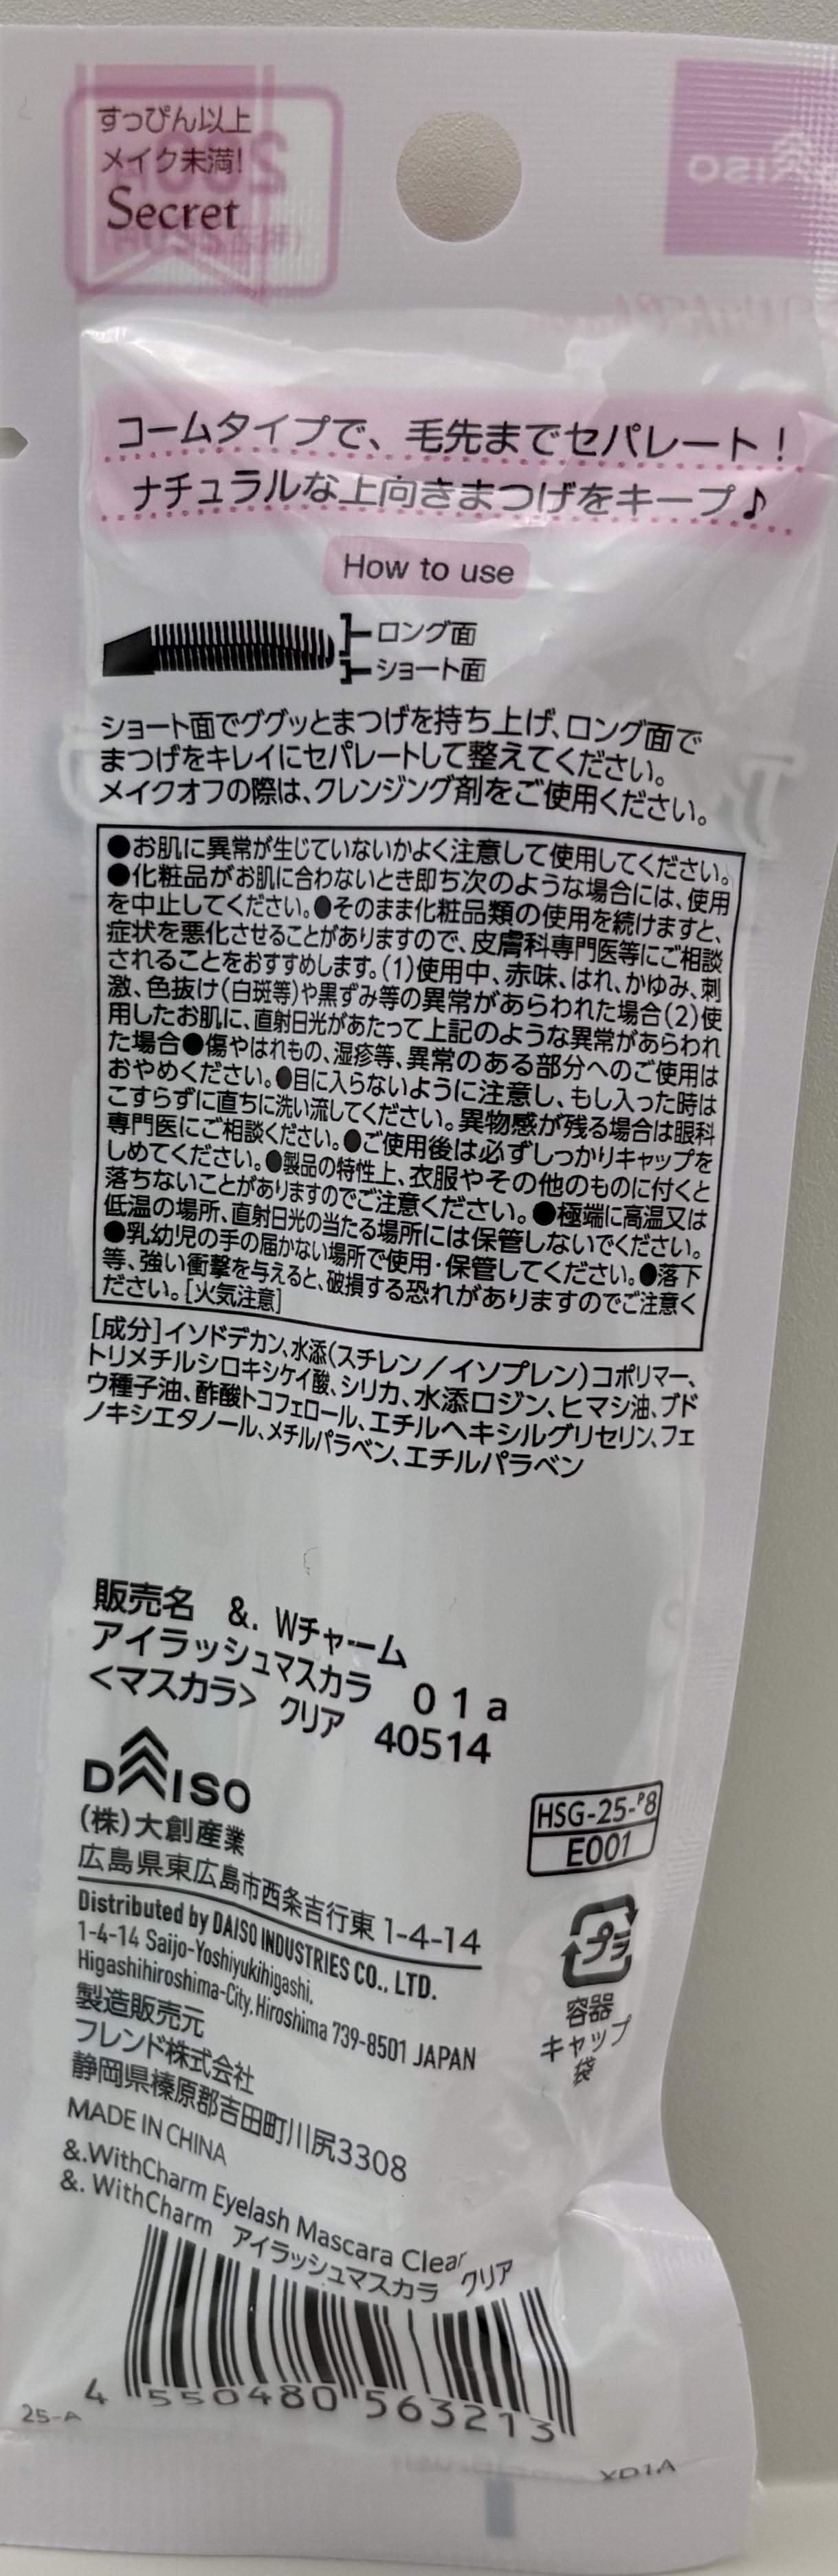 すっぴん以上
メイク未満!
Secret
コームタイプで、毛先までセパレート!
ナチュラルな上向きまつげをキープ♪
How to use
ロング面
ショート面
ショート面でググッとまつげを持ち上げ、ロング面で
まつげをキレイにセパレートして整えてください。
メイクオフの際は、クレンジング剤をご使用ください。
●お肌に異常が生じていないかよく注意して使用してください。
●化粧品がお肌に合わないとき即ち次のような場合には、使用
を中止してください。●そのまま化粧品類の使用を続けますと、
症状を悪化させることがありますので、皮膚科専門医等にご相談
されることをおすすめします。(1)使用中、赤味、はれ、かゆみ、刺
激、色抜け(白斑等)や黒ずみ等の異常があらわれた場合(2)使
用したお肌に、直射日光があたって上記のような異常があらわれ
た場合●傷やはれもの、湿疹等、異常のある部分へのご使用は
おやめください。●目に入らないように注意し、もし入った時は
こすらずに直ちに洗い流してください。異物感が残る場合は眼科
専門医にご相談ください。●ご使用後は必ずしっかりキャップを
しめてください。●製品の特性上、衣服やその他のものに付くと
落ちないことがありますのでご注意ください。●極端に高温又は
低温の場所、直射日光の当たる場所には保管しないでください。
●乳幼児の手の届かない場所で使用・保管してください。●落下
等、強い衝撃を与えると、破損する恐れがありますのでご注意く
ださい。[火気注意]
[成分]イソドデカン、水添(スチレン/イソプレン)コポリマー、
トリメチルシロキシケイ酸、シリカ、水添ロジン、ヒマシ油、ブド
ウ種子油、酢酸トコフェロール、エチルヘキシルグリセリン、フェ
ノキシエタノール、メチルパラベン、エチルパラベン
販売名 &. Wチャーム
アイラッシュマスカラ 01a
<マスカラ> クリア 40514
DAISO
(株)大創産業
広島県東広島市西条吉行東1-4-14
Distributed by DAISO INDUSTRIES CO., LTD.
1-4-14 Saijo-Yoshiyukihigashi,
Higashihiroshima-City, Hiroshima 739-8501 JAPAN
製造販売元
フレンド株式会社
静岡県榛原郡吉田町川尻3308
MADE IN CHINA
&.WithCharm Eyelash Mascara Clear
&. WithCharm アイラッシュマスカラ クリア
HSG-25-P8
E001
プラ
容器
キャップ
袋
4 550480 563213
25-A
XD1A